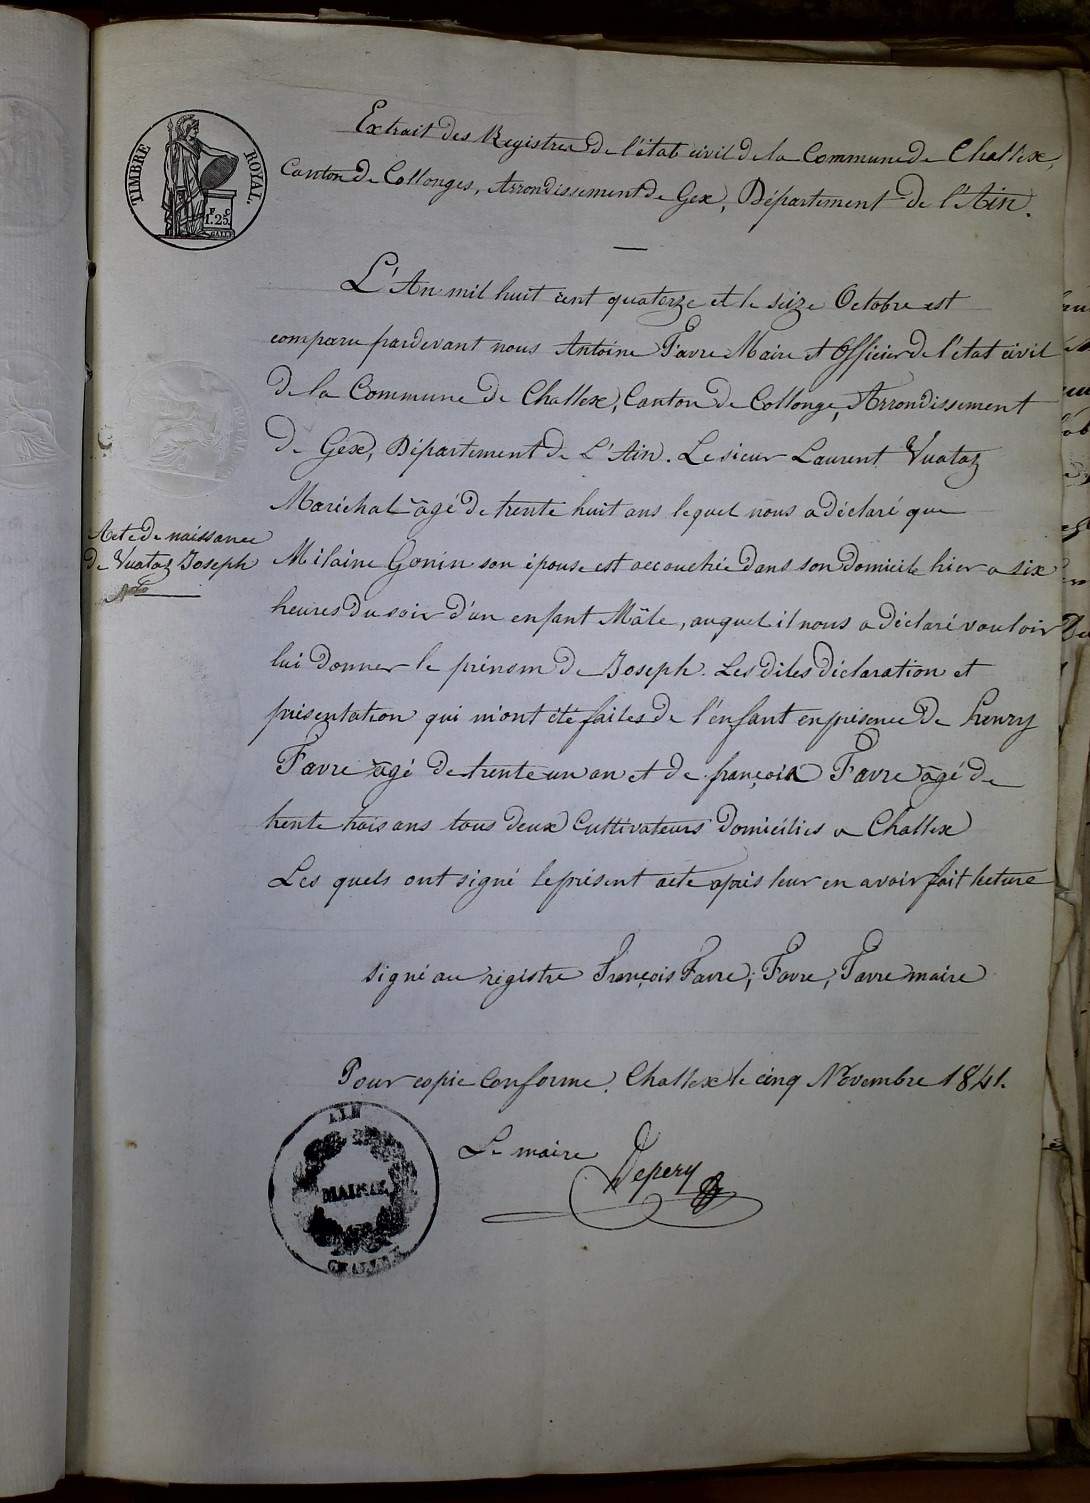 TIMBRE ROYAL.
F C
1.25
Extrait des Registres de l'état civil de la Commune de Challex,
Canton de Collonges, Arrondissement de Gex, Département de l'Ain.
L'An mil huit cent quatorze et le seize Octobre est
comparu pardevant nous Antoine Favre Maire et Officier de l'état civil
de la Commune de Challex, Canton de Collonge, Arrondissement
de Gex, Département de L'Ain. Le sieur Laurent Vuataz
Maréchal âgé de trente huit ans lequel nous a déclaré que
Acte de naissance
de Vuataz Joseph
Milaine Gonin son épouse est accouchée dans son domicile hier a six
heures du soir d'un enfant Mâle, auquel il nous a déclaré vouloir
lui donner le prénom de Joseph. Les dites déclaration et
présentation qui m'ont été faites de l'enfant en présence de henry
Favre âgé de trente un an et de françois Favre âgé de
trente trois ans tous deux Cultivateurs domiciliés a Challex
Les quels ont signé le présent acte après leur en avoir fait lecture
signé au régistre François Favre, Favre, Favre maire
Pour copie Conforme. Challex le cinq Novembre 1841.
Le maire
Depery
AIN
MAIRIE
CHALLEX